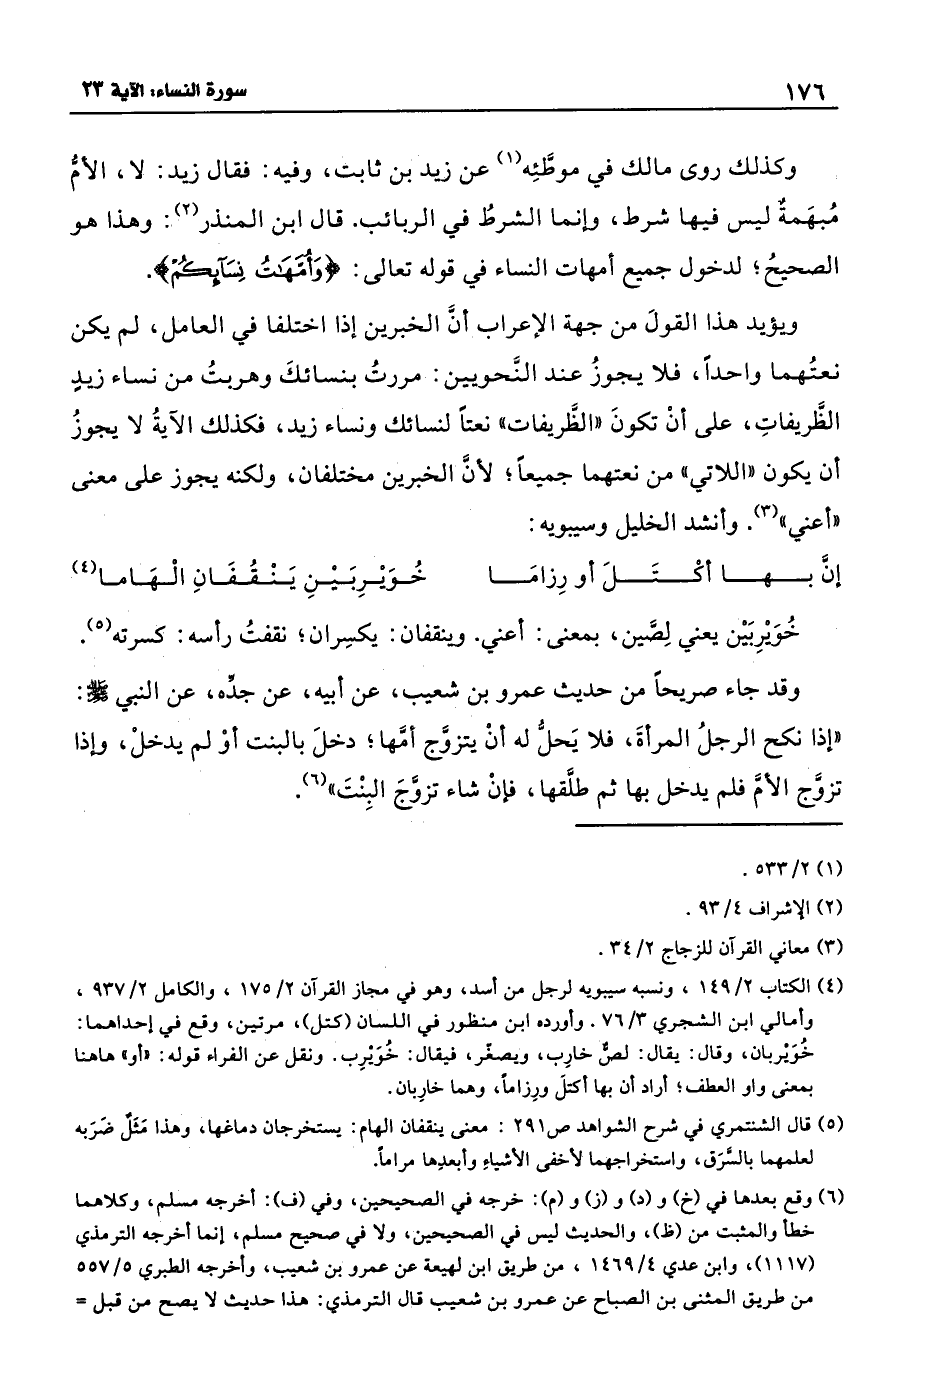 ١٧٦ سورة النساء: الآية ٢٣
وكذلك روى مالك في موطَّئِه(١) عن زيد بن ثابت، وفيه: فقال زيد: لا، الأمُّ
مُبهَمةٌ ليس فيها شرط، وإنما الشرطُ في الربائب. قال ابن المنذر(٢): وهذا هو
الصحيحُ؛ لدخول جميع أمهات النساء في قوله تعالى: ﴿وَأُمَّهَٰتُ نِسَآئِكُمْ﴾.
ويؤيد هذا القولَ من جهة الإعراب أنَّ الخبرين إذا اختلفا في العامل، لم يكن
نعتُهما واحداً، فلا يجوزُ عند النَّحويين: مررتُ بنسائكَ وهربتُ من نساء زيدٍ
الظَّريفاتِ، على أنْ تكونَ «الظَّريفات» نعتاً لنسائك ونساء زيد، فكذلك الآيةُ لا يجوزُ
أن يكون «اللاتي» من نعتهما جميعاً؛ لأنَّ الخبرين مختلفان، ولكنه يجوز على معنى
«أعني»(٣). وأنشد الخليل وسيبويه:
إنَّ بـهـا أكْتَـلَ أو رِزامَـا خُوَيْرِبَيْنِ يَنْقُفَانِ الْهَامـا(٤)
خُوَيْرِبَيْن يعني لِصَّين، بمعنى: أعني. وينقفان: يكسِران؛ نقفتُ رأسه: كسرته(٥).
وقد جاء صريحاً من حديث عمرو بن شعيب، عن أبيه، عن جدِّه، عن النبي ﷺ:
«إذا نكح الرجلُ المرأةَ، فلا يَحلُّ له أنْ يتزوَّج أمَّها؛ دخلَ بالبنت أوْ لم يدخلْ، وإذا
تزوَّج الأمَّ فلم يدخل بها ثم طلَّقها، فإنْ شاء تزوَّجَ البِنْتَ»(٦).
(١) ٥٣٣/٢ .
(٢) الإشراف ٩٣/٤ .
(٣) معاني القرآن للزجاج ٣٤/٢ .
(٤) الكتاب ١٤٩/٢ ، ونسبه سيبويه لرجل من أسد، وهو في مجاز القرآن ١٧٥/٢ ، والكامل ٩٣٧/٢ ،
وأمالي ابن الشجري ٧٦/٣ . وأورده ابن منظور في اللسان (كتل)، مرتين، وقع في إحداهما:
خُوَيْربان، وقال: يقال: لصٌّ خارِب، ويصغّر، فيقال: خُوَيْرِب. ونقل عن الفراء قوله: «أو» هاهنا
بمعنى واو العطف؛ أراد أن بها أكتلَ ورِزاماً، وهما خارِبان.
(٥) قال الشنتمري في شرح الشواهد ص٢٩١ : معنى ينقفان الهام: يستخرجان دماغها، وهذا مَثَلٌ ضَرَبه
لعلمهما بالسَّرَق، واستخراجهما لأخفى الأشياءِ وأبعدِها مراماً.
(٦) وقع بعدها في (خ) و (د) و (ز) و (م): خرجه في الصحيحين، وفي (ف): أخرجه مسلم، وكلاهما
خطأ والمثبت من (ظ)، والحديث ليس في الصحيحين، ولا في صحيح مسلم، إنما أخرجه الترمذي
(١١١٧)، وابن عدي ١٤٦٩/٤ ، من طريق ابن لهيعة عن عمرو بن شعيب، وأخرجه الطبري ٥٥٧/٥
من طريق المثنى بن الصباح عن عمرو بن شعيب قال الترمذي: هذا حديث لا يصح من قبل =